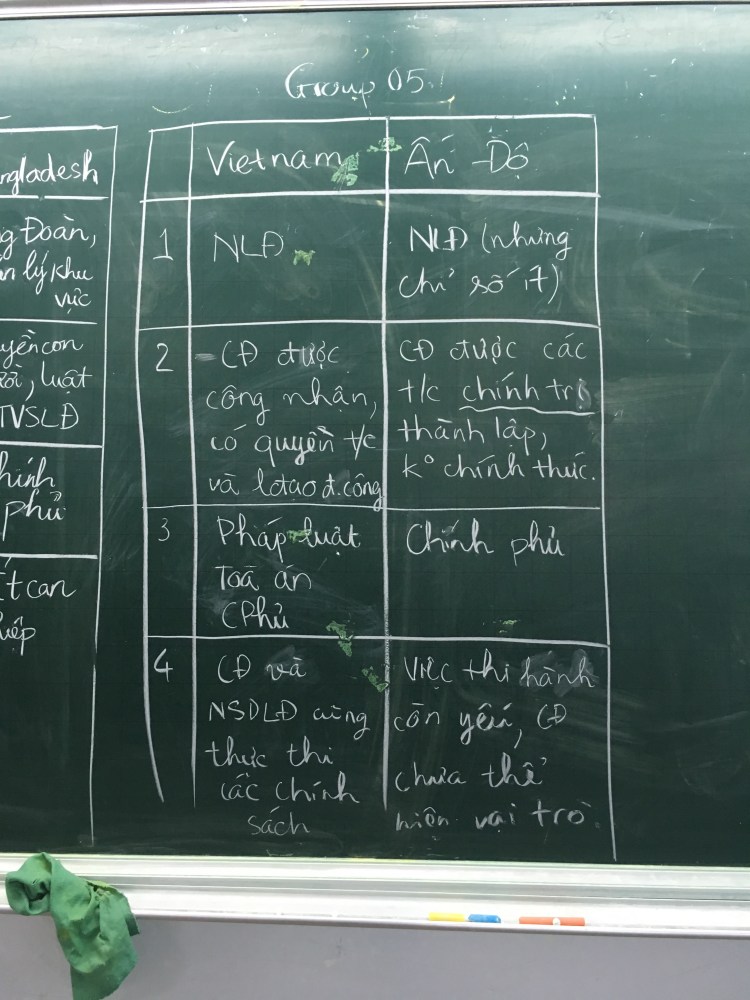 Group 05
ngladesh
g Đoàn,
n lý khu
vực
yền con
luật
TVSLĐ
hính
phủ
ít can
iệp
Vietnam
Ấn Độ
1
NLĐ
NLĐ (nhưng
chỉ số ít)
2
- CĐ được
công nhận,
có quyền t/c
và lđtạo đ.công
CĐ được các
t/c chính trị
thành lập,
k° chính thức.
3
Pháp luật
Toà án
CPhủ
Chính phủ
4
CĐ và
NSDLĐ cùng
thực thi
các chính
sách
Việc thi hành
còn yếu, CĐ
chưa thể
hiện vai trò.